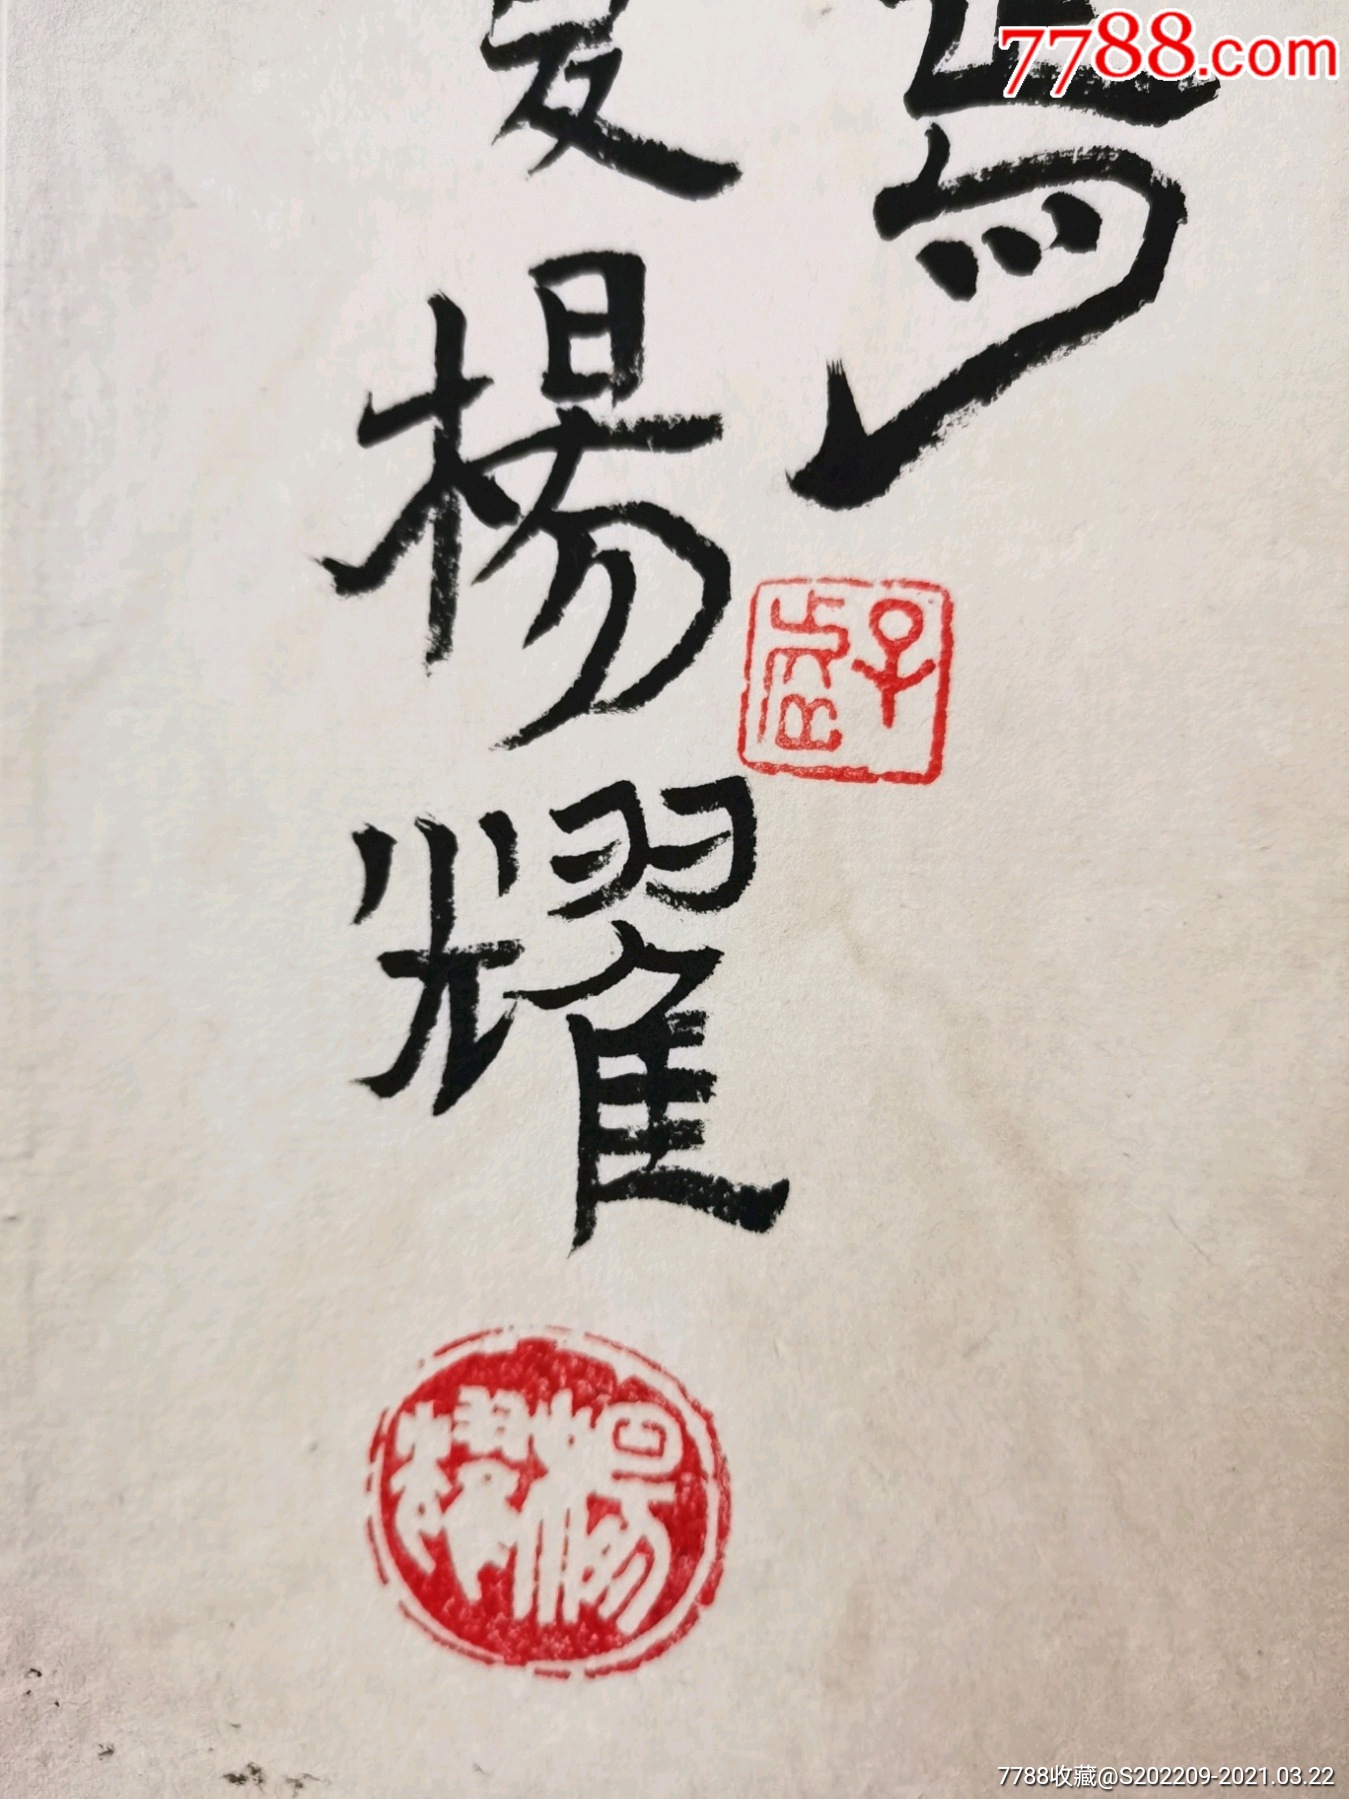 7788.com
焉
夏楊耀
楊耀
7788收藏@S202209-2021.03.22